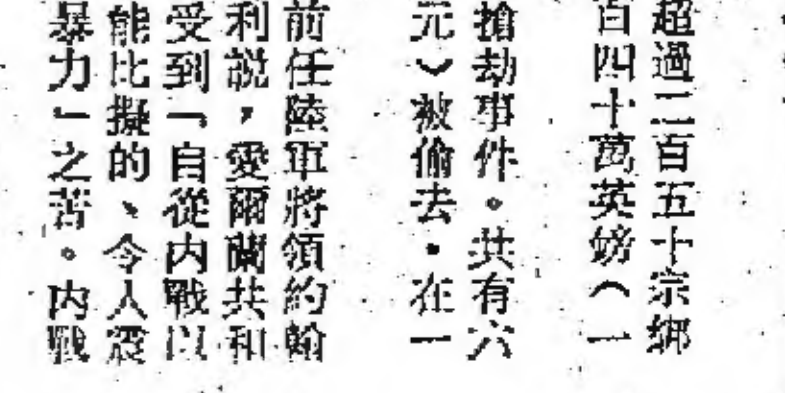 超過二百五十宗綁
百四十萬英鎊（一
搶劫事件。共有六
元）被偷去．在一
前任陸軍將領約翰
利說，愛爾蘭共和
受到「自從內戰以
能比擬的、令人震
暴力」之苦。內戰